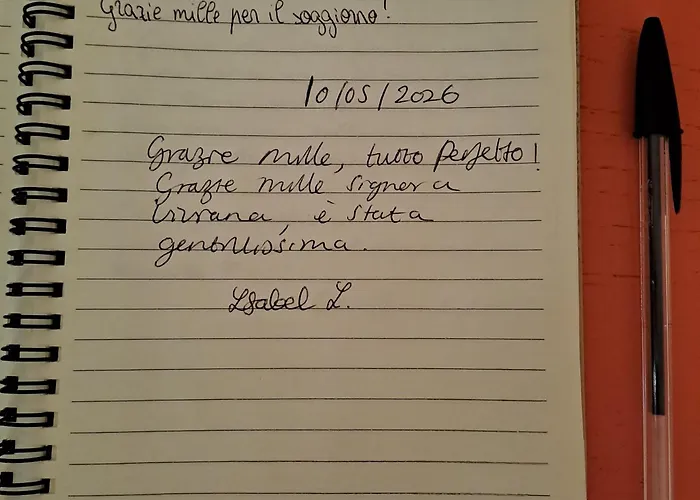 Grazie mille per il soggiorno!
10/05/2026
Grazie mille, tutto perfetto!
Grazie mille signora
è stata
gentilissima.
Isabel L.